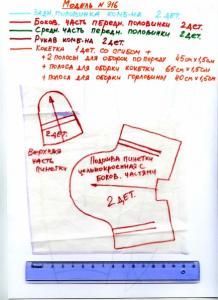 Модель N 916
Задн. половинка комб-на 2 дет.
Боков. часть передн. половинки 2 дет.
Средн. часть передн. половинки 2 дет.
Рукав комб-на 2 дет.
Кокетка 1 дет. со сгибом +
+ 2 полосы для оборок по переду 45см х 1,5см
+ полоса для оборки кокетки 65см х 1,5см
+ полоса для оборки горловины 40см х 1,5см
2 дет.
Верхняя
часть
пинетки
Подошва пинетки
цельнокроеная с
боков. частями
2 дет.